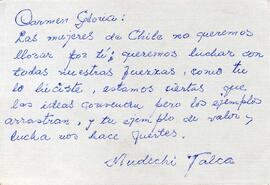 Carmen Gloria:
Las mujeres de Chile no queremos
llorar por tí; queremos luchar con
todas nuestras fuerzas, como tu
lo hiciste, estamos ciertas que
las ideas convencen pero los ejemplos
arrastran, y tu ejemplo de valor y
lucha nos hace fuertes.
Mudechi Talca